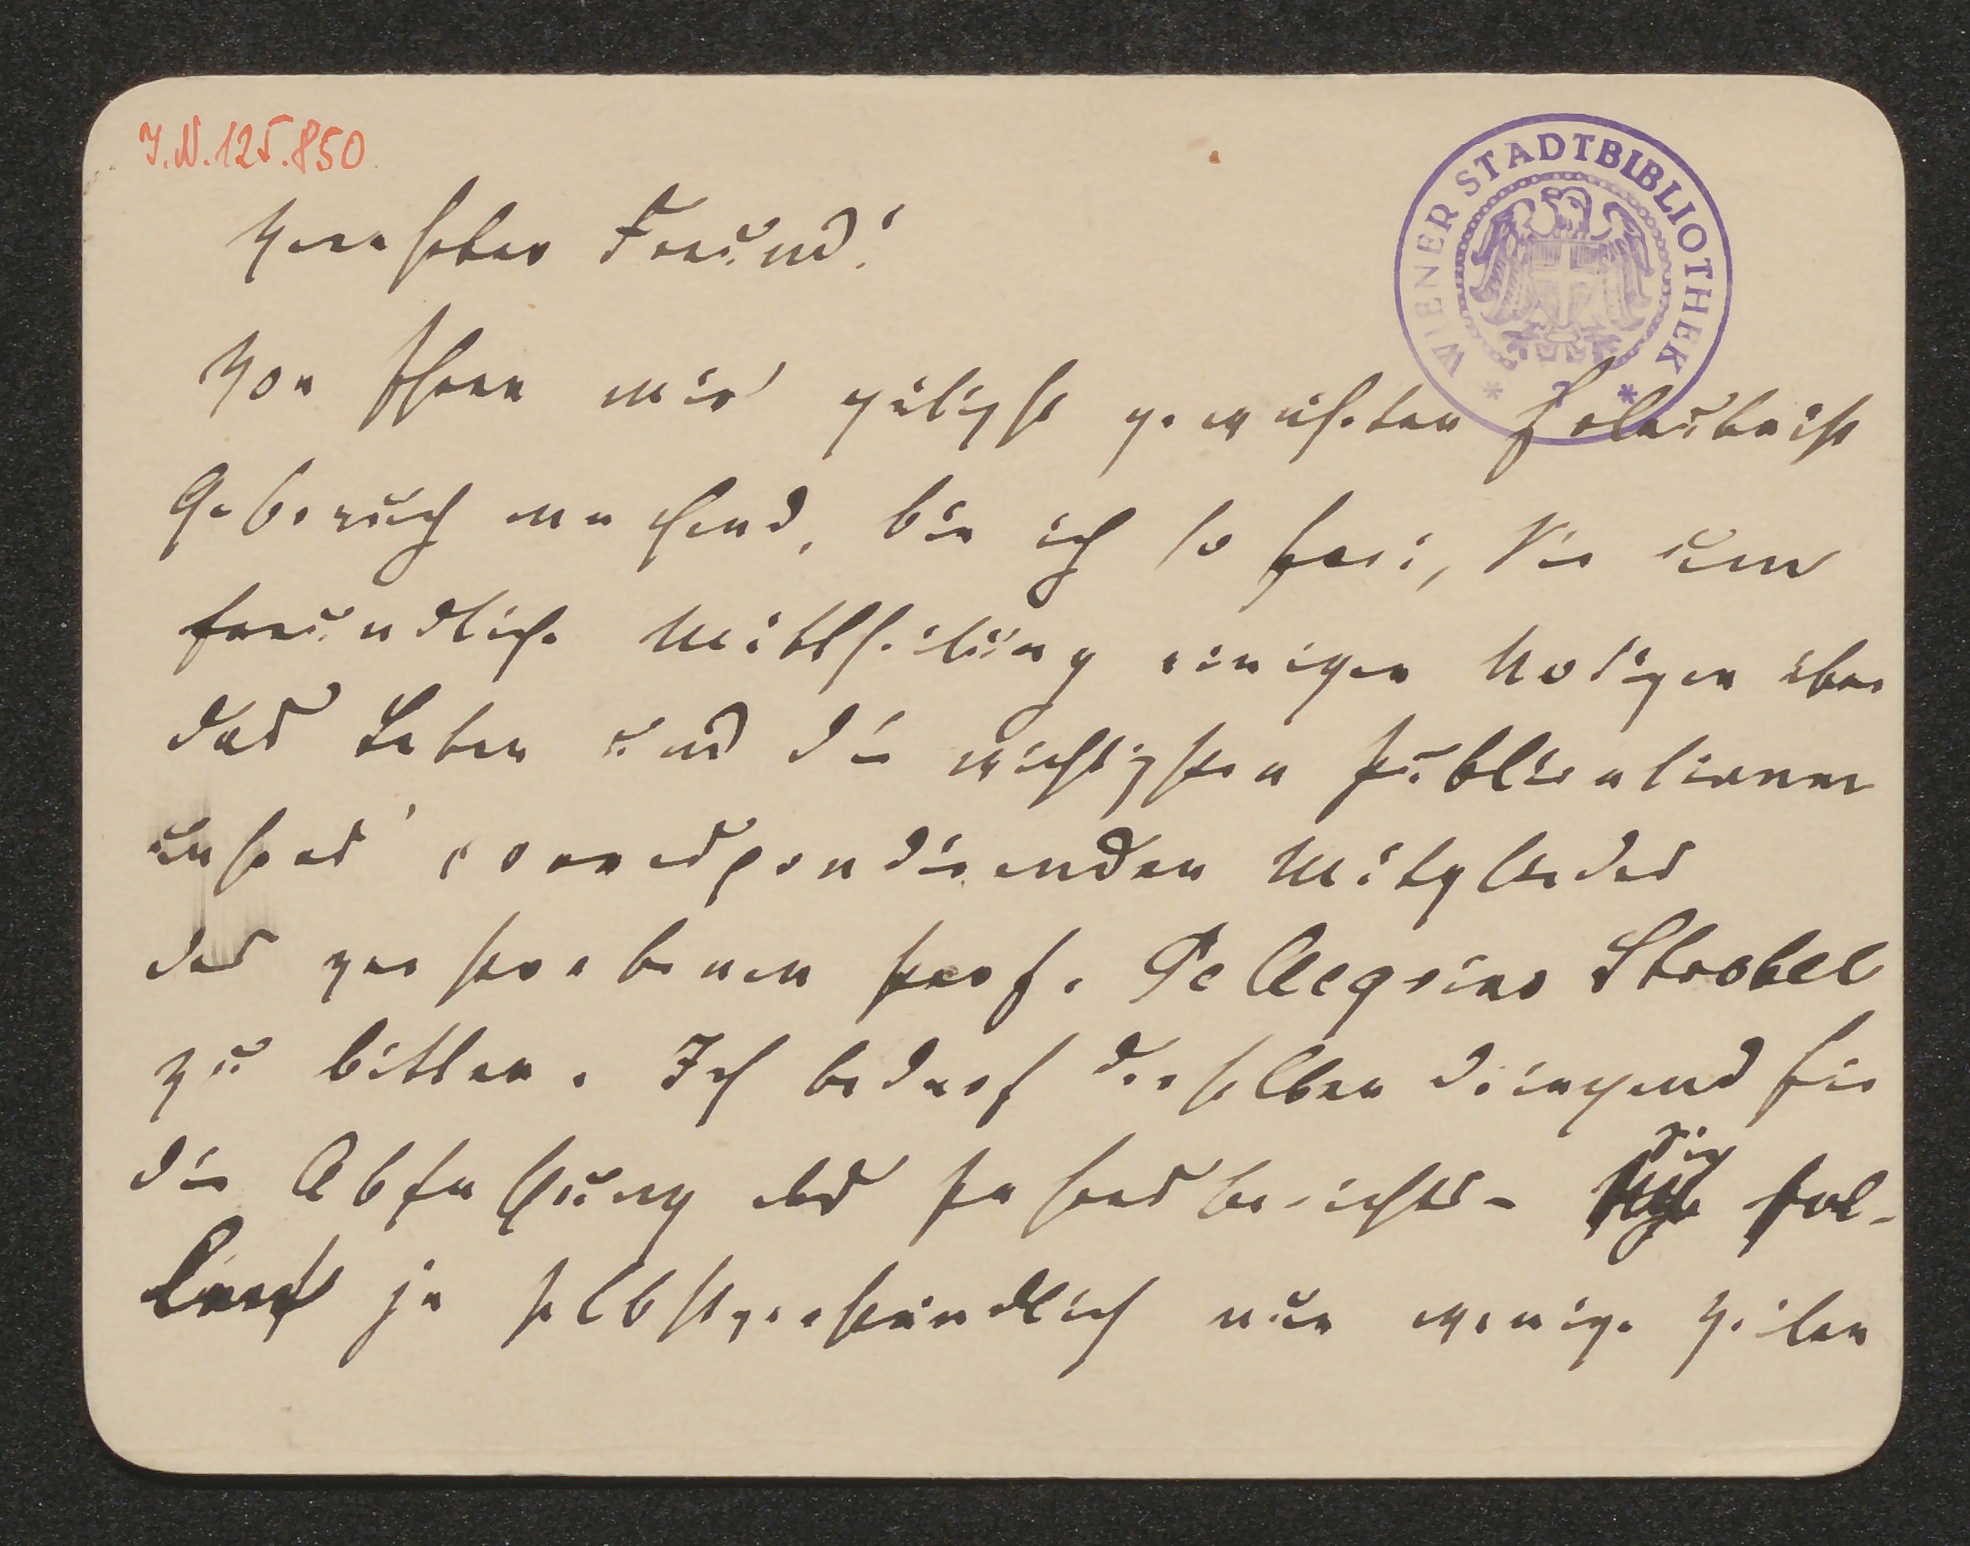 I.N. 125.850
WIENER STADTBIBLIOTHEK
Verehrter Freund!
Von Ihrer mir gütigst gewährten Erlaubniß
Gebrauch machend, bin ich so frei, Sie um
freundliche Mittheilung einiger Notizen über
das Leben und die wichtigsten Publicationen
unseres correspondirenden Mitgliedes
des verstorbenen Prof. Pellegrino Strobel
zu bitten. Ich bedarf derselben dringend für
die Abfassung des Jahresberichts - für
ja selbstverständlich nur wenige Zeilen